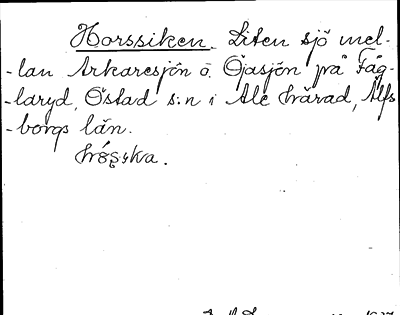 Horssiken. Liten sjö mel-
-lan Arkaresjön o. Öjasjön på Fäg-
-laryd, Östad s:n i Ale härad, Älfs
-borgs län.